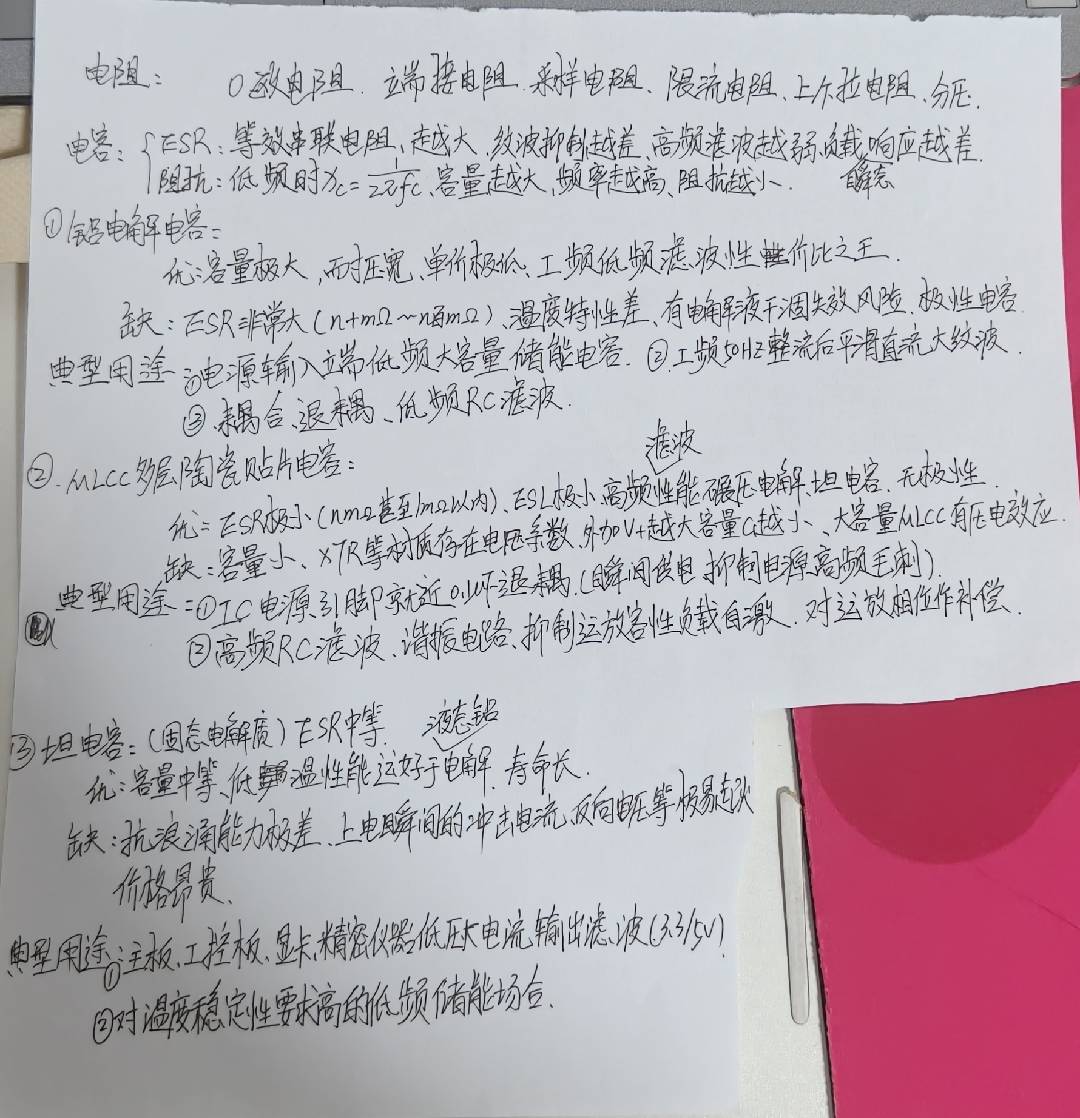 电阻： 0欧电阻、端接电阻、采样电阻、限流电阻、上下拉电阻、分压.
电容：{ESR：等效串联电阻，越大，纹波抑制越差，高频滤波越弱，负载瞬态响应越差.
阻抗：低频时Xc=1/2πfc、容量越大，频率越高，阻抗越小.
①铝电解电容：
优：容量极大，耐压宽、单价极低、工频低频滤波性价比之王.
缺：ESR非常大(n+mΩ~n百mΩ)、温度特性差、有电解液干涸失效风险、极性电容
典型用途：①电源输入端低频大容量储能电容. ②工频50HZ整流后平滑直流大纹波.
③耦合、退耦、低频RC滤波.
②.MLCC多层陶瓷贴片电容：
优：ESR极小(nmΩ甚至1mΩ以内)、ESL极小、高频滤波性能碾压电解、坦电容、无极性.
缺：容量小、X7R等材质存在电压系数、外加V+越大容量C越小、大容量MLCC有压电效应.
典型用途：①IC电源引脚就近0.1uF退耦(瞬间供电抑制电源高频毛刺).
②高频RC滤波、谐振电路、抑制运放容性负载自激、对运放相位作补偿.
③坦电容：(固态电解质)ESR中等.
优：容量中等、低温性能远好于液态铝电解、寿命长.
缺：抗浪涌能力极差、上电瞬间的冲击电流、反向电压等极易起火
价格昂贵.
典型用途：①主板、工控板、显卡、精密仪器低压大电流输出滤波(3.3/5V)
②对温度稳定性要求高的低频储能场合.